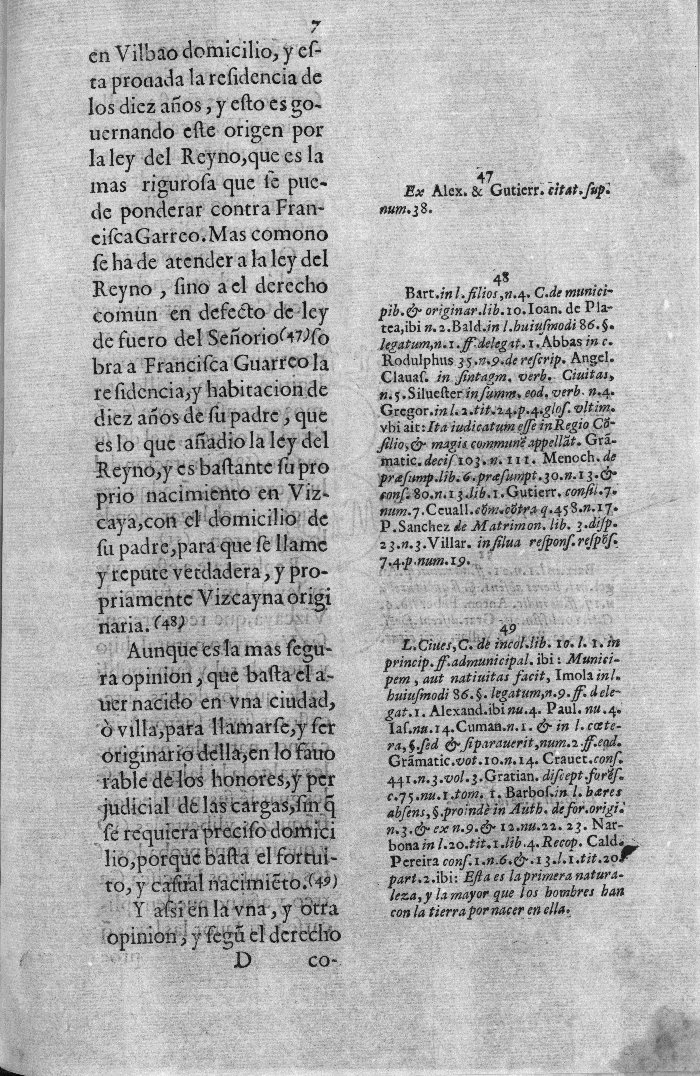 7
en Vilbao domicilio, y eſ-
ta prouada la reſidencia de
los diez años, y eſto es go-
uernando eſte origen por
la ley del Reyno, que es la
mas riguroſa que ſe pue-
de ponderar contra Fran-
ciſca Garreo. Mas como no
ſe ha de atender a la ley del
Reyno, ſino a el derecho
comun en defecto de ley
de fuero del Señorio (47) ſo
bra a Franciſca Guarreo la
reſidencia, y habitacion de
diez años de ſu padre, que
es lo que añadio la ley del
Reyno, y es baſtante ſu pro
prio nacimiento en Viz-
caya, con el domicilio de
ſu padre, para que ſe llame
y repute verdadera, y pro-
priamente Vizcayna origi
naria. (48)
Aunque es la mas ſegu-
ra opinion, que baſta el a-
uer nacido en vna ciudad,
ò villa, para llamarſe, y ſer
originario della, en lo fauo
rable de los honores, y per
judicial de las cargas, ſin q̃
ſe requiera preciſo domici
lio, porque baſta el fortui-
to, y caſual nacimiẽto. (49)
Y aſsi en la vna, y otra
opinion, y ſegũ el derecho
D co-
47
Ex Alex. & Gutierr. citat. ſup.
num. 38.
48
Bart. in l. filios, n. 4. C. de munici-
pib. & originar. lib. 10. Ioan. de Pla-
tea, ibi n. 2. Bald. in l. huiuſmodi 86. §.
legatum, n. 1. ff. delegat. 1. Abbas in c.
Rodulphus 35. n. 9. de reſcrip. Angel.
Clauaſ. in ſintagm. verb. Ciuitas,
n. 5. Silueſter in ſumm. eod. verb. n. 4.
Gregor. in l. 2. tit. 24. p. 4. gloſ. vltim.
vbi ait: Ita iudicatum eſſe in Regio Cõ-
ſilio, & magis communẽ appellãt. Grã-
matic. deciſ. 103. n. 111. Menoch. de
præſump. lib. 6. præſumpt. 30. n. 13. &
conſ. 80. n. 13. lib. 1. Gutierr. conſil. 7.
num. 7. Ceuall. cõm. cõtra q. 458. n. 17.
P. Sanchez de Matrimon. lib. 3. diſp.
23. n. 3. Villar. in ſilua reſponſ. reſpõſ.
7. 4. p. num. 19.
49
L. Ciues, C. de incol. lib. 10. l. 1. in
princip. ff. ad municipal. ibi: Munici-
pem, aut natiuitas facit, Imola in l.
huiuſmodi 86. §. legatum, n. 9. ff. dele-
gat. 1. Alexand. ibi nu. 4. Paul. nu. 4.
Iaſ. nu. 14. Cuman. n. 1. & in l. cæte-
ra, §. ſed & ſi parauerit, num. 2. ff. eod.
Grãmatic. vot. 10. n. 14. Crauet. conſ.
441. n. 3. vol. 3. Gratian. diſcept. forẽſ.
c. 75. nu. 1. tom. 1. Barboſ. in l. hæres
abſens, §. proindè in Auth. de for. origi.
n. 3. & ex n. 9. & 12. nu. 22. 23. Nar-
bona in l. 20. tit. 1. lib. 4. Recop. Cald.
Pereira conſ. 1. n. 6. & 13. l. 1. tit. 20.
part. 2. ibi: Eſta es la primera natura-
leza, y la mayor que los hombres han
con la tierra por nacer en ella.